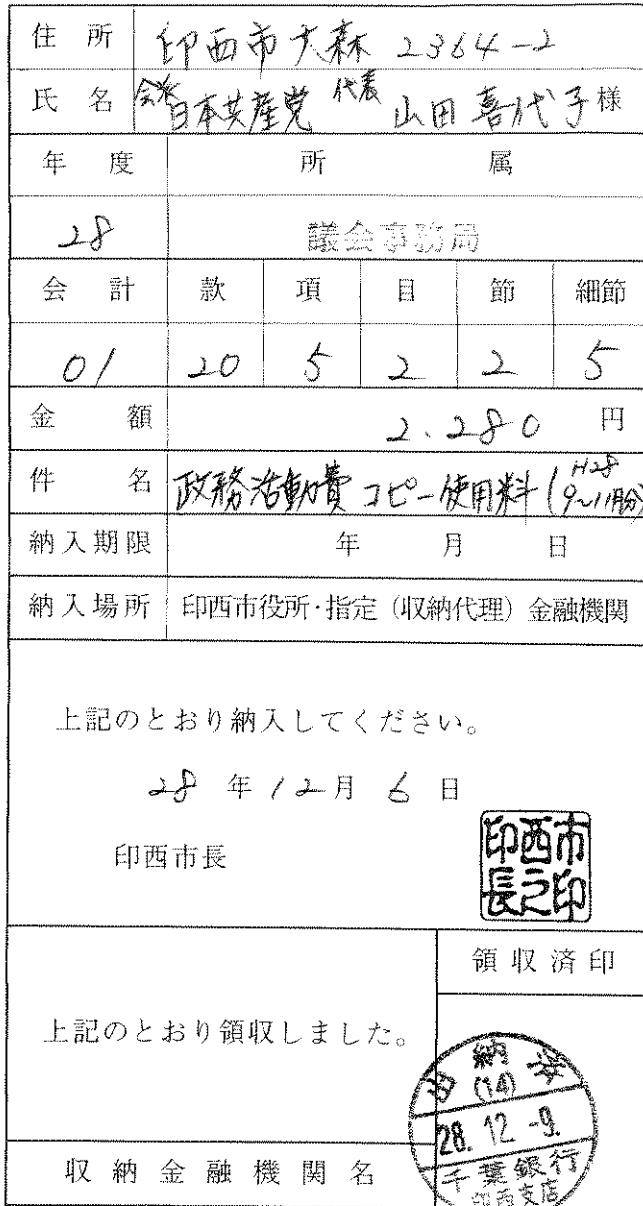 住所 印西市大森 2364-2
氏名 会派 日本共産党 代表 山田喜代子 様
年度 所属
28 議会事務局
会計 款 項 目 節 細節
01 20 5 2 2 5
金額 2.280 円
件名 政務活動費 コピー使用料 (H28 9〜11月分)
納入期限 年 月 日
納入場所 印西市役所・指定(収納代理)金融機関
上記のとおり納入してください。
28 年 12月 6 日
印西市長
印西市長之印
領収済印
上記のとおり領収しました。
納
(14)
28.12.-9.
千葉銀行
印西支店
収納金融機関名